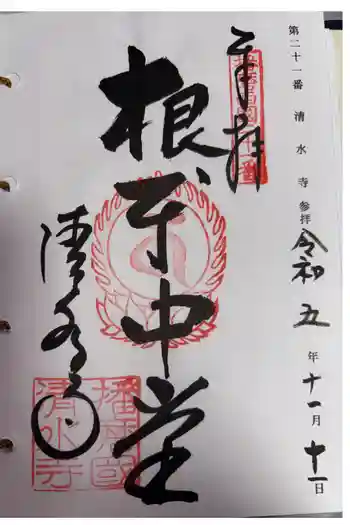 第二十一番 清水寺 参拝 令和五年十一月十一日
奉拝
根本中堂
清水寺
播州国
清水寺